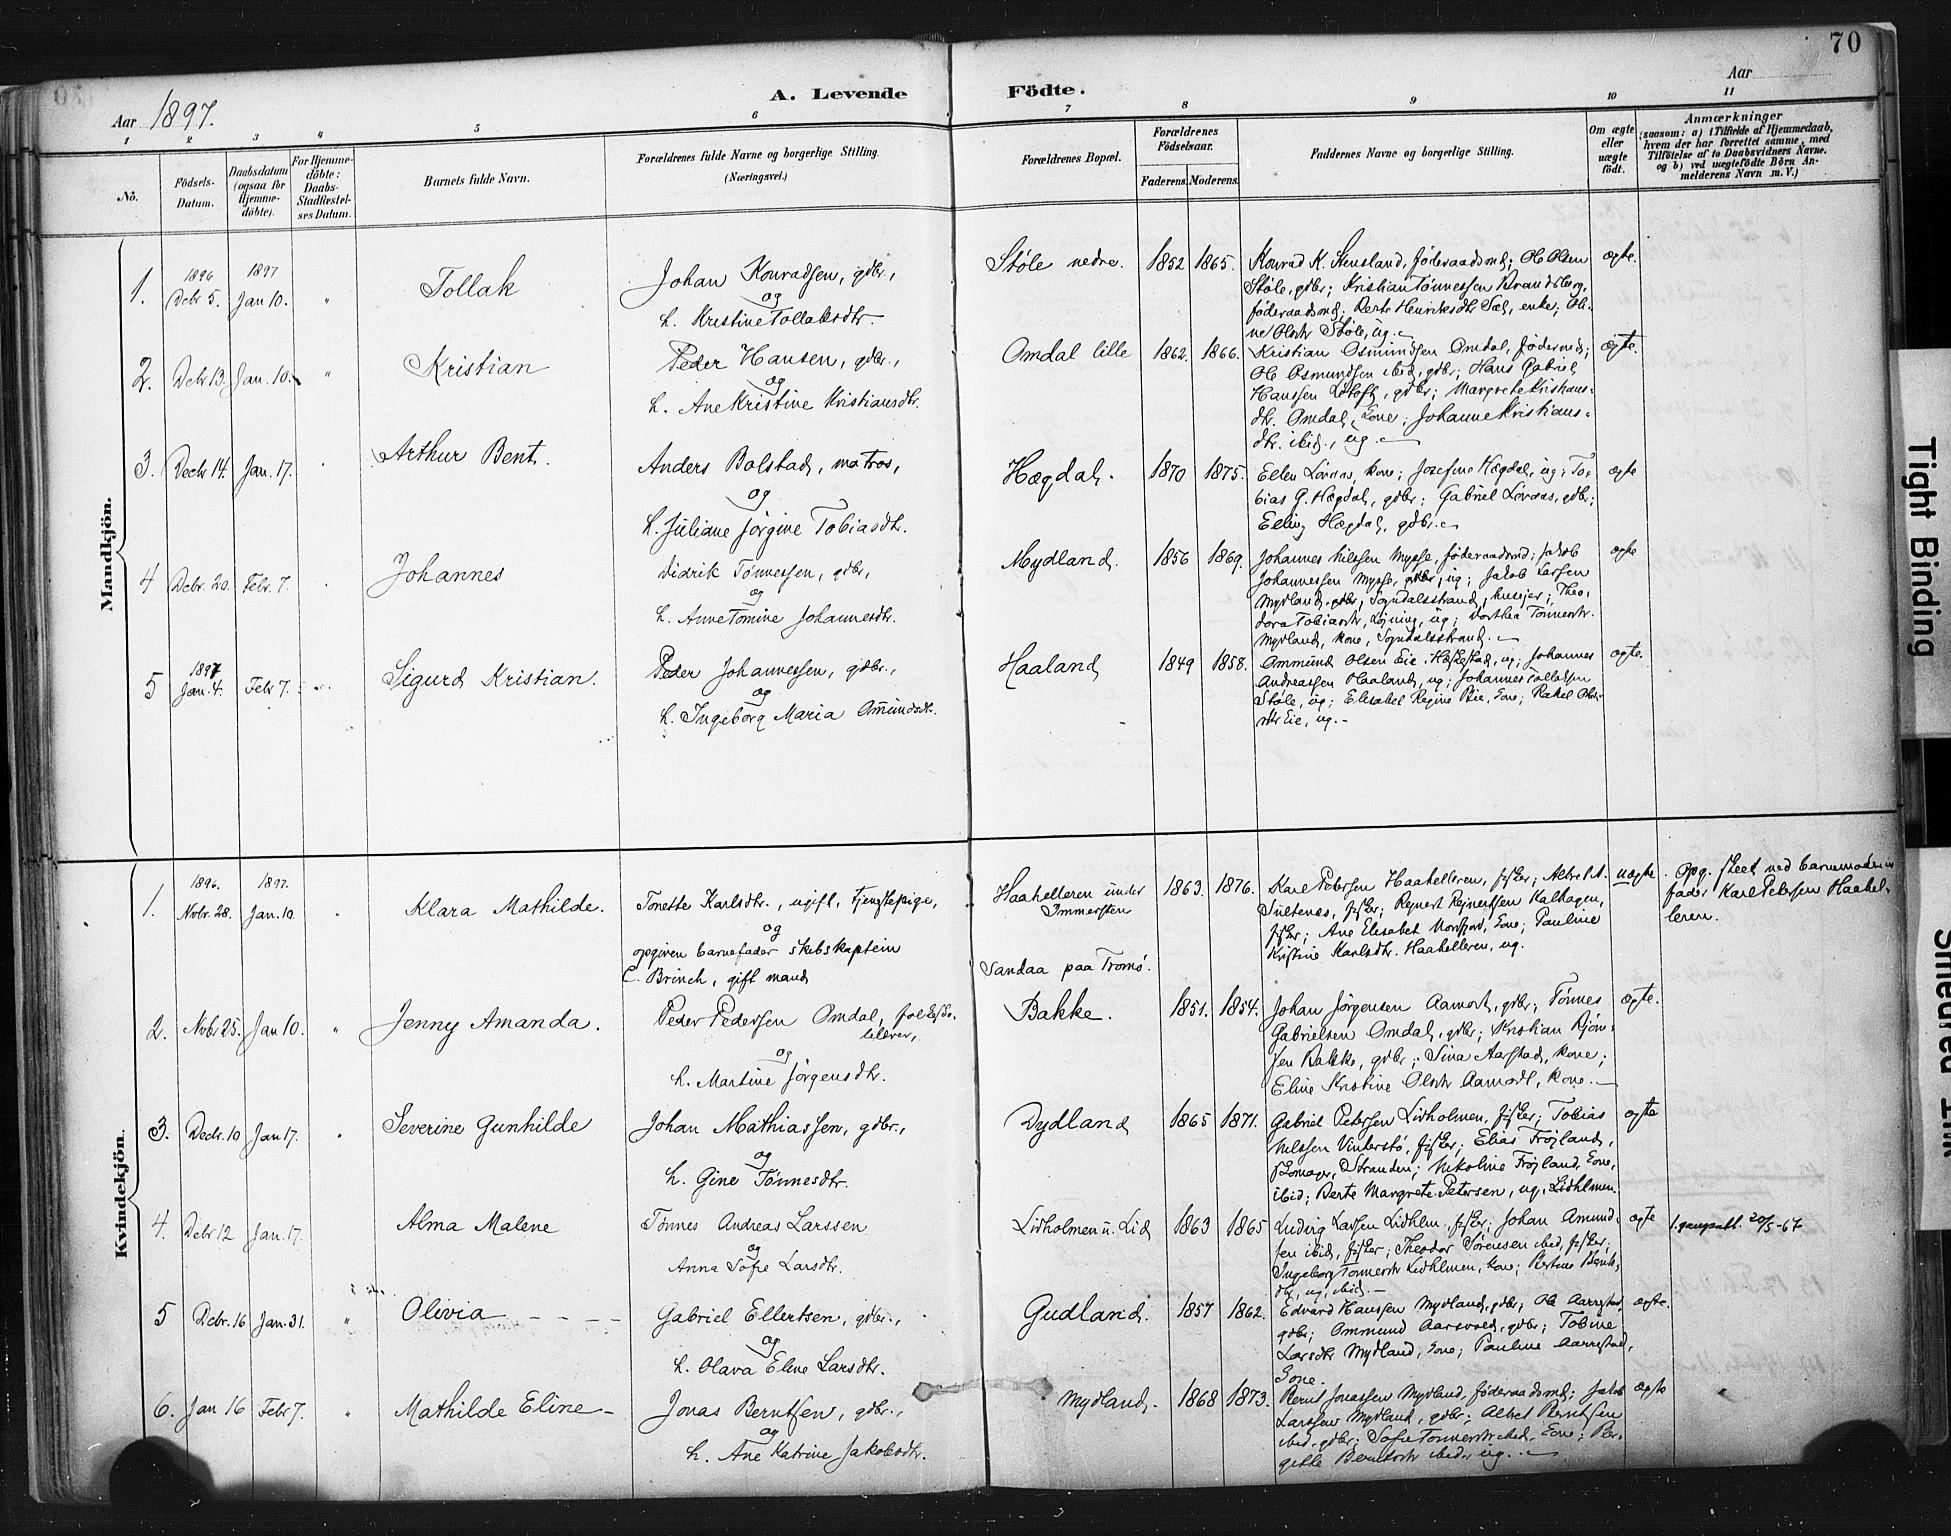 70
Aar 1897.
A. Levende Födte.
Aar
1 2 3 4 5 6 7 8 9 10 11
No.
Födsels-Datum.
Daabsdatum (ogsaa for Hjemmedöbte).
For Hjemmedöbte: Daabs-Stadfæstelses Datum.
Barnets fulde Navn.
Forældrenes fulde Navne og borgerlige Stilling.
(Næringsvei.)
Forældrenes Bopæl.
Forældrenes Födselsaar.
Faderens. Moderens.
Faddernes Navne og borgerlige Stilling.
Om ægte eller uægte födt.
Anmærkninger
(saasom: a) i Tilfælde af Hjemmedaab,
hvem der har forrettet samme, med
Tilföielse af to Daabsvidners Navne.
og b) ved uægtefödte Börn Anmelderens Navn m. V.)
Mandkjön.
1. 1896 Debr 5. 1897 Jan 10. " Tollak
Johan Konradsen, gdbr.,
og
h. Kristine Tollaksdtr.
Støle nedre. 1852 1865.
Konrad K. Stensland, føderaadsmd; Ole Olsen
Støle, gdbr; Kristian Tønnessen Brandsberg,
føderaadsmd; Berte Henriksdtr Sæl, enke; Oline
Olsdtr Støle, ug.
ægte.
2. Debr 13. Jan. 10. " Kristian
Peder Hansen, gdbr.,
og
h. Ane Kristine Kristiansdtr.
Omdal lille 1862. 1866.
Kristian Osmundsen Omdal, fødermd;
Ole Osmundsen ibid, gdbr; Hans Gabriel
Hanssen, gdbr; Margrete Kristiansdtr.
Omdal, kone; Johanne Kristiansdtr.
ibid., ug.
ægte.
3. Decbr 14. Jan. 17. Arthur Bent.
Anders Bolstad, matros,
og
h. Juliane Jørgine Tobiasdtr.
Hægdal. 1870 1875.
Ellen Løvaas, kone; Josefine Hægdal, ug; Tobias
G. Hægdal, gdbr; Gabriel Løvaas, gdbr;
Elling Hægdal, gdbr.
ægte
4 Debr. 20. Febr. 7. Johannes
Didrik Tønnessen, gdbr,
og
h. Anne Tomine Johannesdtr.
Mydland. 1856 1869.
Johannes Nilssen Mysse, føderaadsmd; Jakob
Johannessen Mysse, gdbr, ug; Jakob Larssen
Mydland, Sogndalsstrand, huseier; Theodora
Tobiasdtr, ug; Dorthea Tønnesdtr.
Mydland, kone, Sogndalsstrand.
ægte
5 1897 Jan. 4. Febr 7. Sigurd Kristian.
Peder Johannessen, gdbr.,
og
h. Ingeborg Maria Amundsdtr.
Haaland 1849 1858.
Ommund Olsen Eie, Heskestad, ug; Johannes
Andreassen Haaland, ug; Johannes Tollaksen
Støle, ug; Elisabet Regine Eie, kone; Rakel Olsdtr
Eie, ug.
ægte.
Kvindekjön.
1. 1896. Novbr. 28. 1897. Jan. 10. Klara Mathilde.
Tonette Karlsdtr., ugift, tjenstepige,
og
opgiven barnefader skibskaptein
C. Brinch, gift mand
Haahelleren under Immersten
Sandaa paa Tromø.
1863. 1876.
Karl Petersen Haahelleren, fisker; Albert A.
Sultenes, fisker; Reinert Reinertsen Kalhagen,
fisker; Ane Elisabet, kone; Pauline
Kristine Karlsdtr. Haahelleren, ug.
uægte
Opg. skeet ved barnemoderens
fader Karl Petersen Haahelleren.
2. Novbr 25. Jan 10. " Jenny Amanda.
Peder Pedersen Omdal,
og
h. Martine Jørgensdtr.
Bakke. 1851. 1854.
Johan Jørgensen Aamodt, gdbr; Tønnes
Gabrielsen Omdal, gdbr; Kristian
Bakke, gdbr; Sina Aarstad, kone;
Eline Kristine Olsdtr Aamodt, kone.
ægte.
3. Decbr. 10 Jan 17. Severine Gunhilde
Johan Mathiassen, gdbr.,
og
h. Gine Tønnesdtr.
Dydland 1865 1871.
Gabriel Petersen Lidholmen, fisker; Tobias
Nilssen Vinterstø, fisker; Elias Frøjland,
skomager, Stranden; Nikoline Frøjland, kone,
ibid; Berte Margrete Petersen, ug, Lidhlmen.
ægte
4. Debr 12 Jan. 17. Alma Malene
Tønnes Andreas Larssen
og
Anna Sofie Larsdtr.
Lidholmen u. Lid 1863 1865
Ludvig Larssen Lidhlm. fisker; Johan Amundsen
ibid, fisker; Theodor Sørensen ibid, fisker;
Ingeborg Tønnesdtr Lidhlmen, kone; Bertine
ug, ibid.
ægte
20/5-67
5 Debr. 16 Jan. 31. " Olivia
Gabriel Ellertsen, gdbr.,
og
h. Olava Eline Larsdtr.
Gudland. 1857 1862.
Edvard Hanssen Mydland, gdbr; Ole Aarrestad,
gdbr; Ommund Aarsvold, gdbr; Tobine
Larsdtr Mydland, kone; Pauline Aarrestad,
kone.
ægte.
6. Jan 16 Febr 7. " Mathilde Eline
Jonas Berntsen, gdbr.,
og
h. Ane Katrine Jakobsdtr.
Mydland. 1868 1873.
Bernt Jonassen Mydland, føderaadsmd; Jakob
Larssen Mydland, gdbr; Albert Berntsen
ibid, gdbr; Sofie Tønnesdtr ibid, kone; Bergitte
Berntsdtr ibid, ug.
ægte
Tight Binding
Smeared Ink